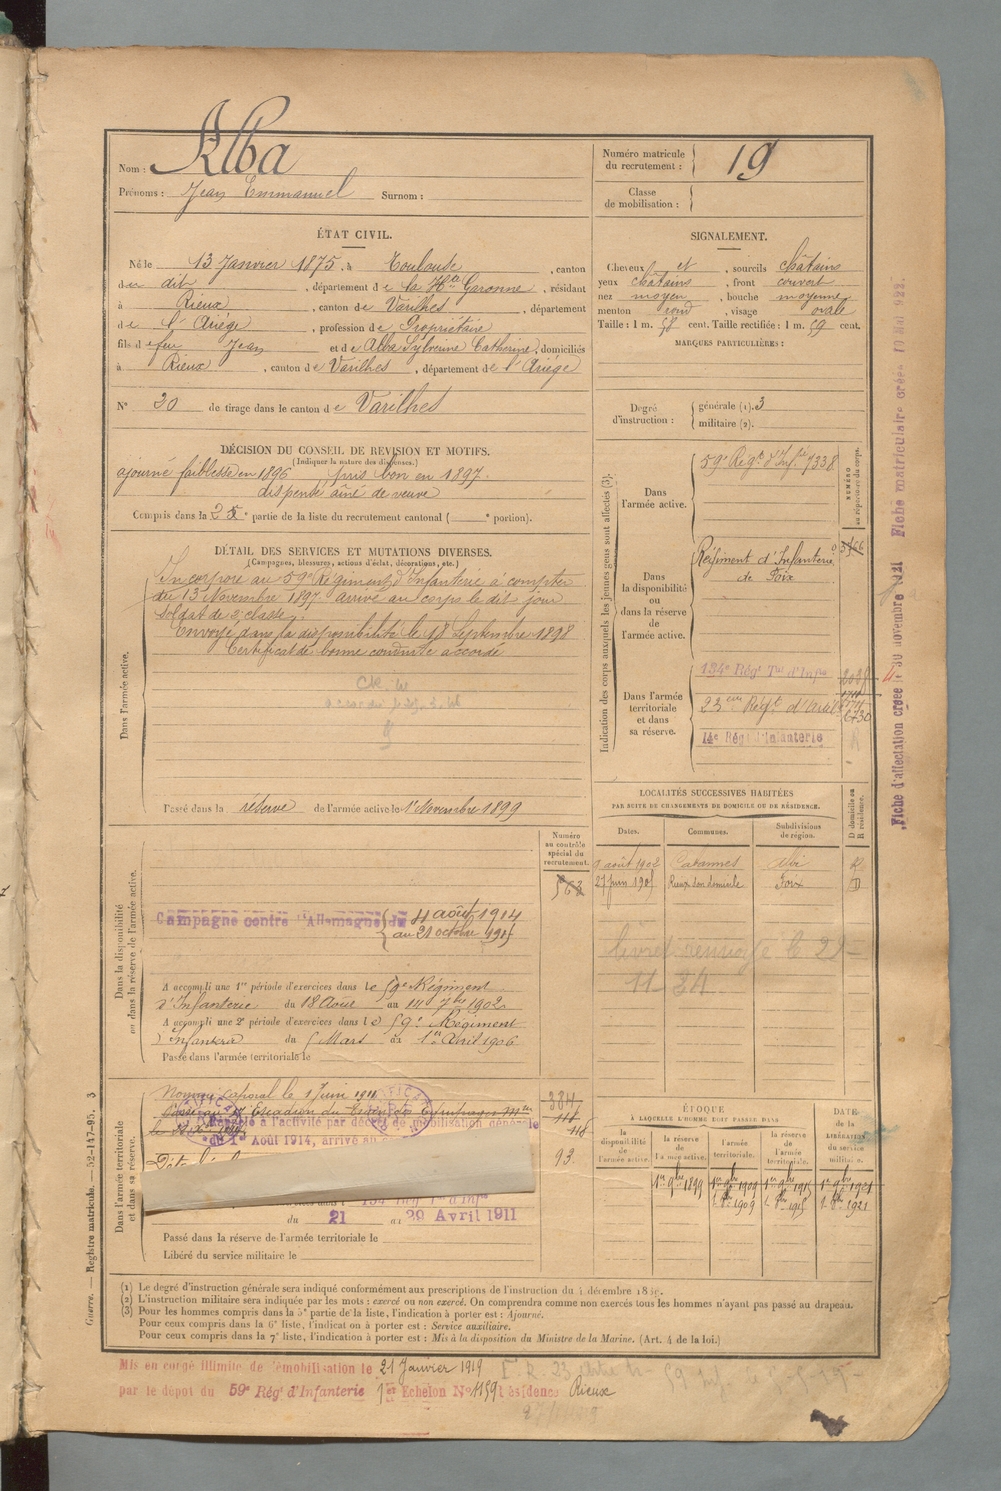 Nom : Alba
Prénoms : Jean Emmanuel Surnom :
Numéro matricule du recrutement : 19
Classe de mobilisation :
ÉTAT CIVIL.
Né le 13 Janvier 1875, à Toulouse, canton
du dit, département de la Hte Garonne, résidant
à Rieux, canton de Varilhes, département
de l'Ariège, profession de Propriétaire
fils de feu Jean et de Alba Sylverine Catherine, domiciliés
à Rieux, canton de Varilhes, département de l'Ariège
N° 20 de tirage dans le canton de Varilhes
SIGNALEMENT.
Cheveux et, sourcils châtains
yeux châtains, front couvert
nez moyen, bouche moyenne
menton rond, visage ovale
Taille : 1 m. 58 cent. Taille rectifiée : 1 m. 59 cent.
MARQUES PARTICULIÈRES :
Degré d'instruction : générale (1). 3
militaire (2).
DÉCISION DU CONSEIL DE REVISION ET MOTIFS.
(Indiquer la nature des dispenses.)
ajourné faiblesse en 1896 pris bon en 1897.
dispensé aîné de veuve
Compris dans la 2e partie de la liste du recrutement cantonal ( e portion).
DÉTAIL DES SERVICES ET MUTATIONS DIVERSES.
(Campagnes, blessures, actions d'éclat, décorations, etc.)
Dans l'armée active.
Incorporé au 59e Régiment d'Infanterie à compter
du 13 Novembre 1897 arrivé au corps le dit jour
Soldat de 2e classe
Envoyé dans la disponibilité le 18 Septembre 1898
Certificat de bonne conduite accordé
Passé dans la réserve de l'armée active le 1er Novembre 1899
Indication des corps auxquels les jeunes gens sont affectés (3).
NUMÉRO au répertoire du corps.
Dans l'armée active.
59e Régt d'Infie 7338
Dans la disponibilité ou dans la réserve de l'armée active.
Régiment d'Infanterie
de Foix
Dans l'armée territoriale et dans sa réserve.
134e Régt Tal d'Infie
14e Régt d'Infanterie
6730
LOCALITÉS SUCCESSIVES HABITÉES
PAR SUITE DE CHANGEMENTS DE DOMICILE OU DE RÉSIDENCE.
Dates. Communes. Subdivisions de région. D domicile ou R résidence.
août 1902 Cabannes Albi R
27 Juin 1905 Rieux son domicile Foix D
11-34
Numéro au contrôle spécial du recrutement.
562
Dans la disponibilité ou dans la réserve de l'armée active.
Campagne contre l'Allemagne du 4 août 1914
au 21 octobre 1915
A accompli une 1re période d'exercices dans le 59e Régiment
d'Infanterie du 18 Août au 14 7bre 1902
A accompli une 2e période d'exercices dans le 59e Régiment
d'Infanterie du 5 Mars au 1er Avril 1906
Passé dans l'armée territoriale le
Dans l'armée territoriale et dans sa réserve.
Nommé Caporal le 1 Juin 1911
Rappelé à l'activité par décret de mobilisation générale
du 1er Août 1914, arrivé au
384
93
134e Régt Tal d'Infie
du 21 au 29 Avril 1911
Passé dans la réserve de l'armée territoriale le
Libéré du service militaire le
ÉPOQUE
À LAQUELLE L'HOMME DOIT PASSER DANS
la disponibilité de l'armée active. la réserve de l'armée active. l'armée territoriale. la réserve de l'armée territoriale. DATE de la LIBÉRATION du service militaire.
1er 9bre 1899 1er 9bre 1909 1er 9bre 1915 1er 9bre 1921
1. 8bre 1909 1. 8bre 1915 1. 8bre 1921
(1) Le degré d'instruction générale sera indiqué conformément aux prescriptions de l'instruction du 4 décembre 1889.
(2) L'instruction militaire sera indiquée par les mots : exercé ou non exercé. On comprendra comme non exercés tous les hommes n'ayant pas passé au drapeau.
(3) Pour les hommes compris dans la 5e partie de la liste, l'indication à porter est : Ajourné.
Pour ceux compris dans la 6e liste, l'indication à porter est : Service auxiliaire.
Pour ceux compris dans la 7e liste, l'indication à porter est : Mis à la disposition du Ministre de la Marine. (Art. 4 de la loi.)
Mis en congé illimité de démobilisation le 21 Janvier 1919
par le dépôt du 59e Régt d'Infanterie 1er Echelon N° 1159 résidence Rieux
Guerre. — Registre matricule. — 52-147-95. 3
Fiche d'affectation créée le 30 novembre 1921 Fiche matriculaire créée 10 Mai 922.